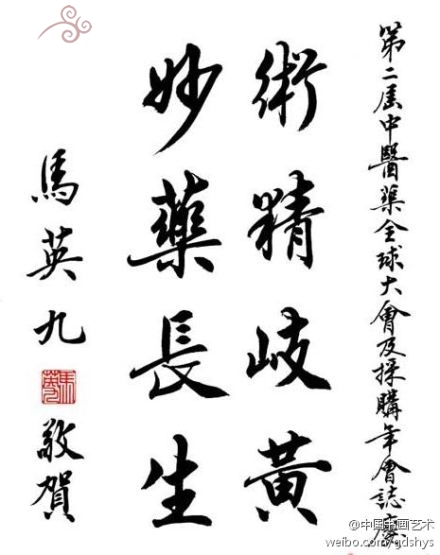 第二屆中醫藥全球大會及採購年會誌慶
術精岐黃
妙藥長生
馬英九
敬賀
@中国书画艺术
weibo.com/gdshys